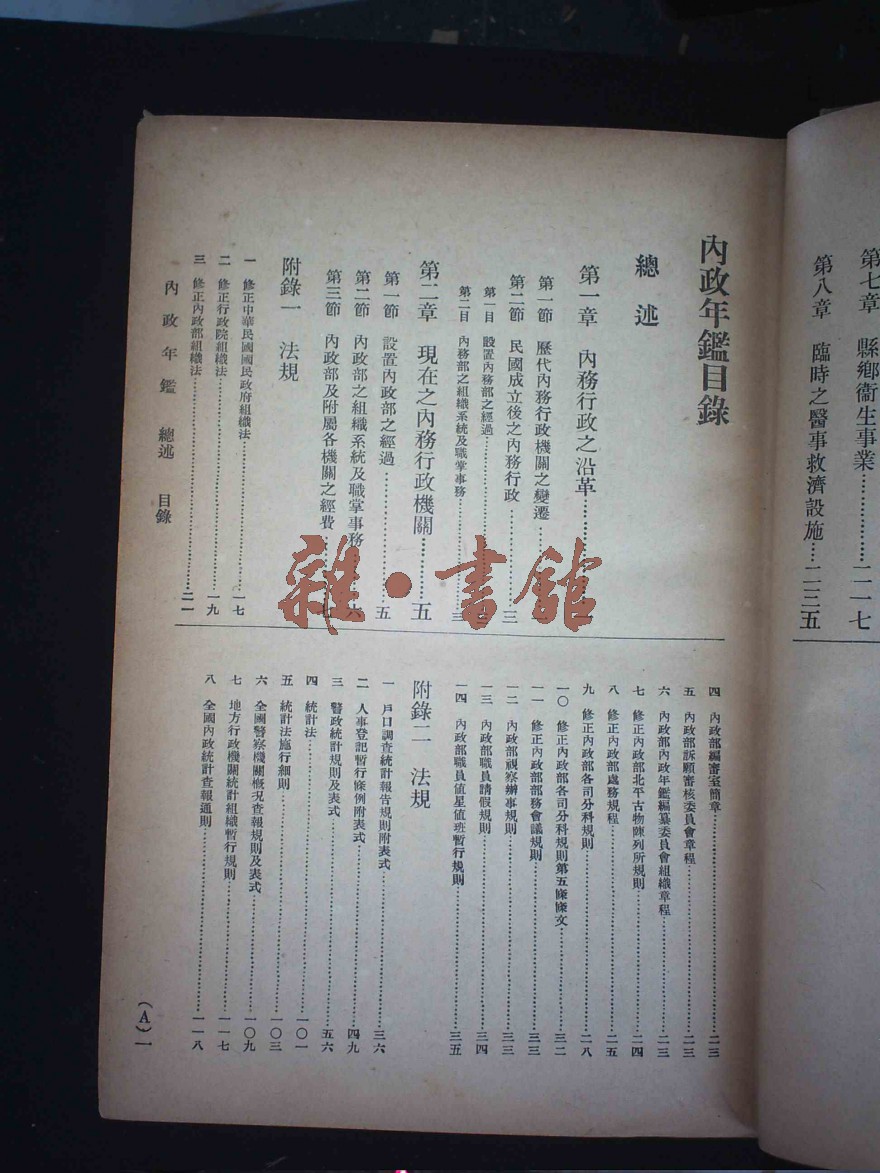 第七章　縣鄉衞生事業…………二一七
第八章　臨時之醫事救濟設施…二三五
內政年鑑目錄
總述
第一章　內務行政之沿革…………
第一節　歷代內務行政機關之變遷…………
第二節　民國成立後之內務行政…………三
第一目　設置內務部之經過…………
第二目　內務部之組織系統及職掌事務…………三
第二章　現在之內務行政機關……五
第一節　設置內政部之經過…………五
第二節　內政部之組織系統及職掌事務…………六
第三節　內政部及附屬各機關之經費…………
附錄一　法規
一　修正中華民國國民政府組織法…………一七
二　修正行政院組織法…………一九
三　修正內政部組織法…………二一
四　內政部編審室簡章…………二三
五　內政部訴願審核委員會章程…………二三
六　內政部內政年鑑編纂委員會組織章程…………二三
七　修正內政部北平古物陳列所規則…………二四
八　修正內政部處務規程…………二五
九　修正內政部各司分科規則…………二八
一〇　修正內政部各司分科規則第五條條文…………三二
一一　修正內政部部務會議規則…………三三
一二　內政部視察辦事規則…………三三
一三　內政部職員請假規則…………三四
一四　內政部職員值星值班暫行規則…………三五
附錄二　法規
一　戶口調查統計報告規則附表式…………三六
二　人事登記暫行條例附表式…………四九
三　警政統計規則及表式…………五六
四　統計法…………一〇一
五　統計法施行細則…………一〇三
六　全國警察機關概況查報規則及表式…………一〇九
七　地方行政機關統計組織暫行規則…………一一七
八　全國內政統計查報通則…………一一八
內政年鑑　總述　目錄
(A)一
雜·書館